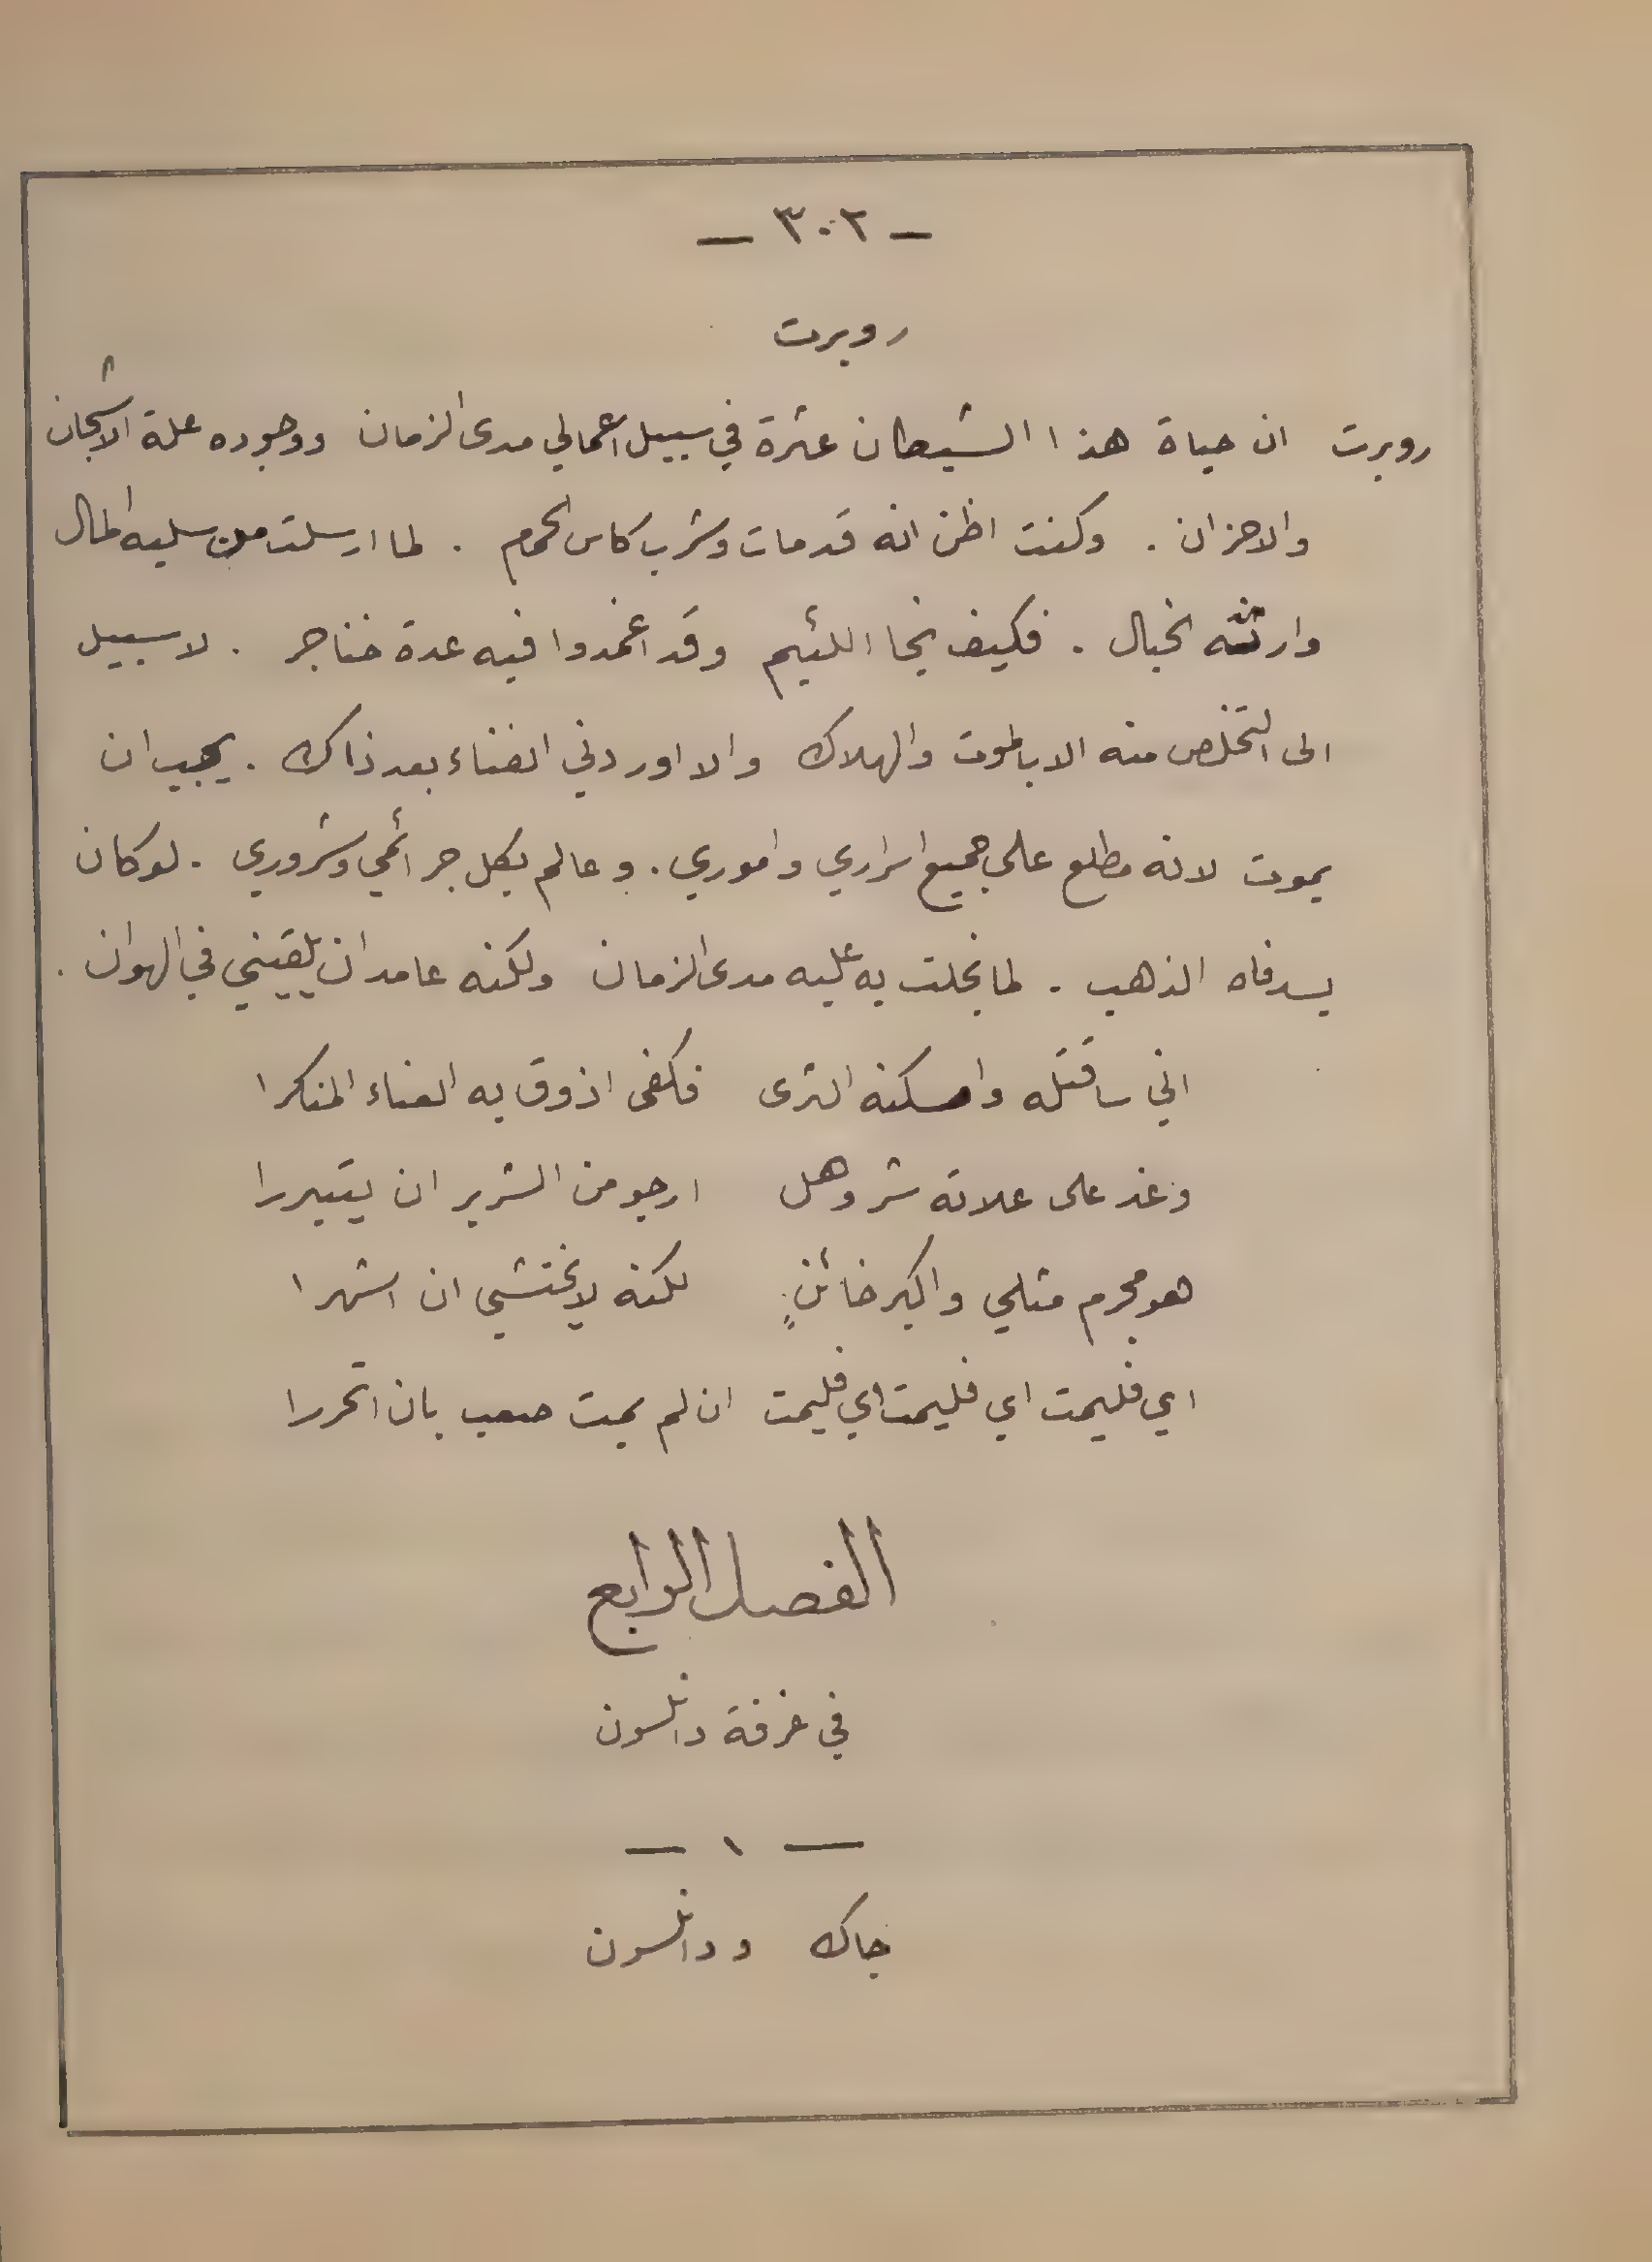 — ٣٠٢ —
روبرت
روبرت ان حياة هذا الشيطان عثرة في سبيل اعمالي مدى الزمان ووجوده علة الاشجان
والاحزان . وكنت اظن انه قد مات وشرب كاس الحمام . لما ارسلت من سلبه المال
وارثته الخبال . فكيف نجا اللئيم وقد اغمدوا فيه عدة خناجر . لا سبيل
الى التخلص منه الا بالموت والهلاك والا اوردني الفناء بعد ذاك . يجب ان
يموت لانه مطلع على جميع اسراري واموري . وعالم بكل جرائمي وشروري . لو كان
يسد فاه الذهب . لما بخلت به عليه مدى الزمان ولكنه عامد ان يلقيني في الهوان .
اني ساقتله واسكنه الثرى فكفى اذوق به العناء المنكرا
وغد على علاته شر وهل ارجو من الشرير ان يتبررا
هو مجرم مثلي واكبر خائنٍ لكنه لا يختشي ان اشهرا
اي فليمت اي فليمت اي فليمت ان لم يمت صعب بان اتحررا
الفصل الرابع
في غرفة دانلسون
— ١ —
جاك و دانلسون